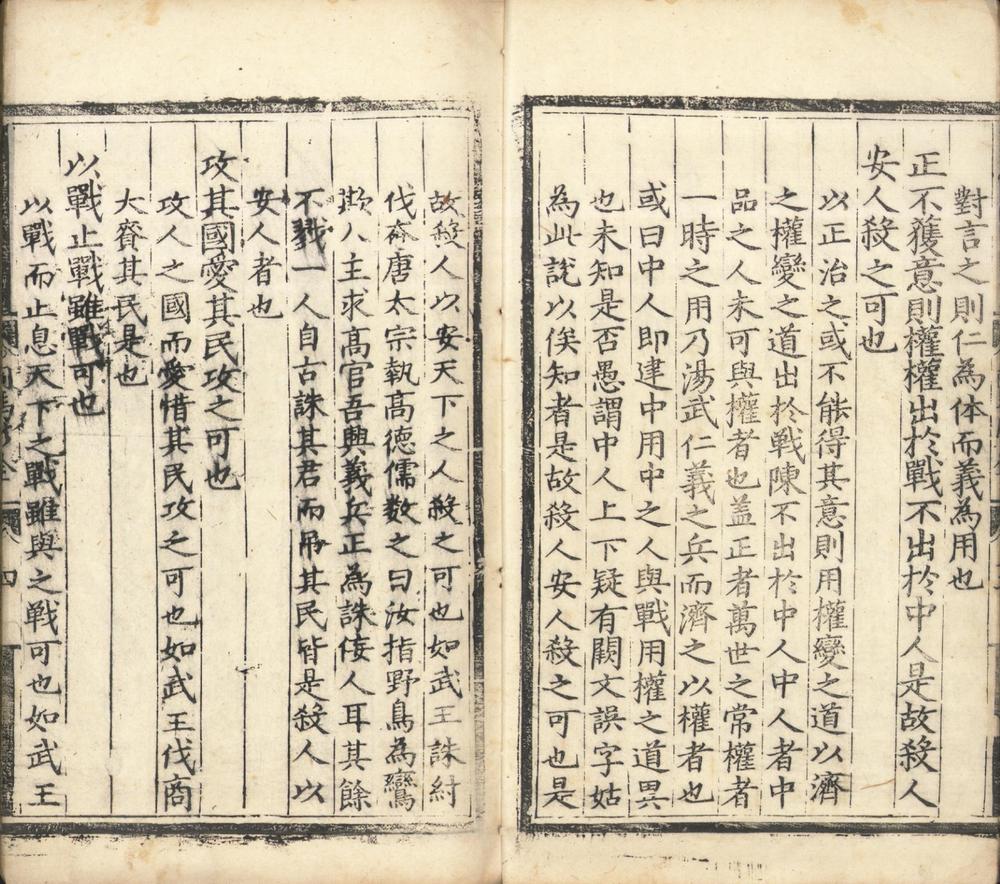 對言之則仁為体而義為用也
正不獲意則權權出於戰不出於中人是故殺人
安人殺之可也
以正治之或不能得其意則用權變之道以濟
之權變之道出於戰陳不出於中人中人者中
品之人未可與權者也盖正者萬世之常權者
一時之用乃湯武仁義之兵而濟之以權者也
或曰中人即建中用中之人與戰用權之道異
也未知是否愚謂中人上下疑有闕文誤字姑
為此說以俟知者是故殺人安人殺之可也是
故殺人以安天下之人殺之可也如武王誅紂
伐奔唐太宗執高德儒数之曰汝指野鳥為鸞
欺人主求高官吾興義兵正為誅侫人耳其餘
不戮一人自古誅其君而吊其民皆是殺人以
安人者也
攻其國愛其民攻之可也
攻人之國而愛惜其民攻之可也如武王伐商
大賚其民是也
以戰止戰雖戰可也
以戰而止息天下之戰雖與之戰可也如武王
四